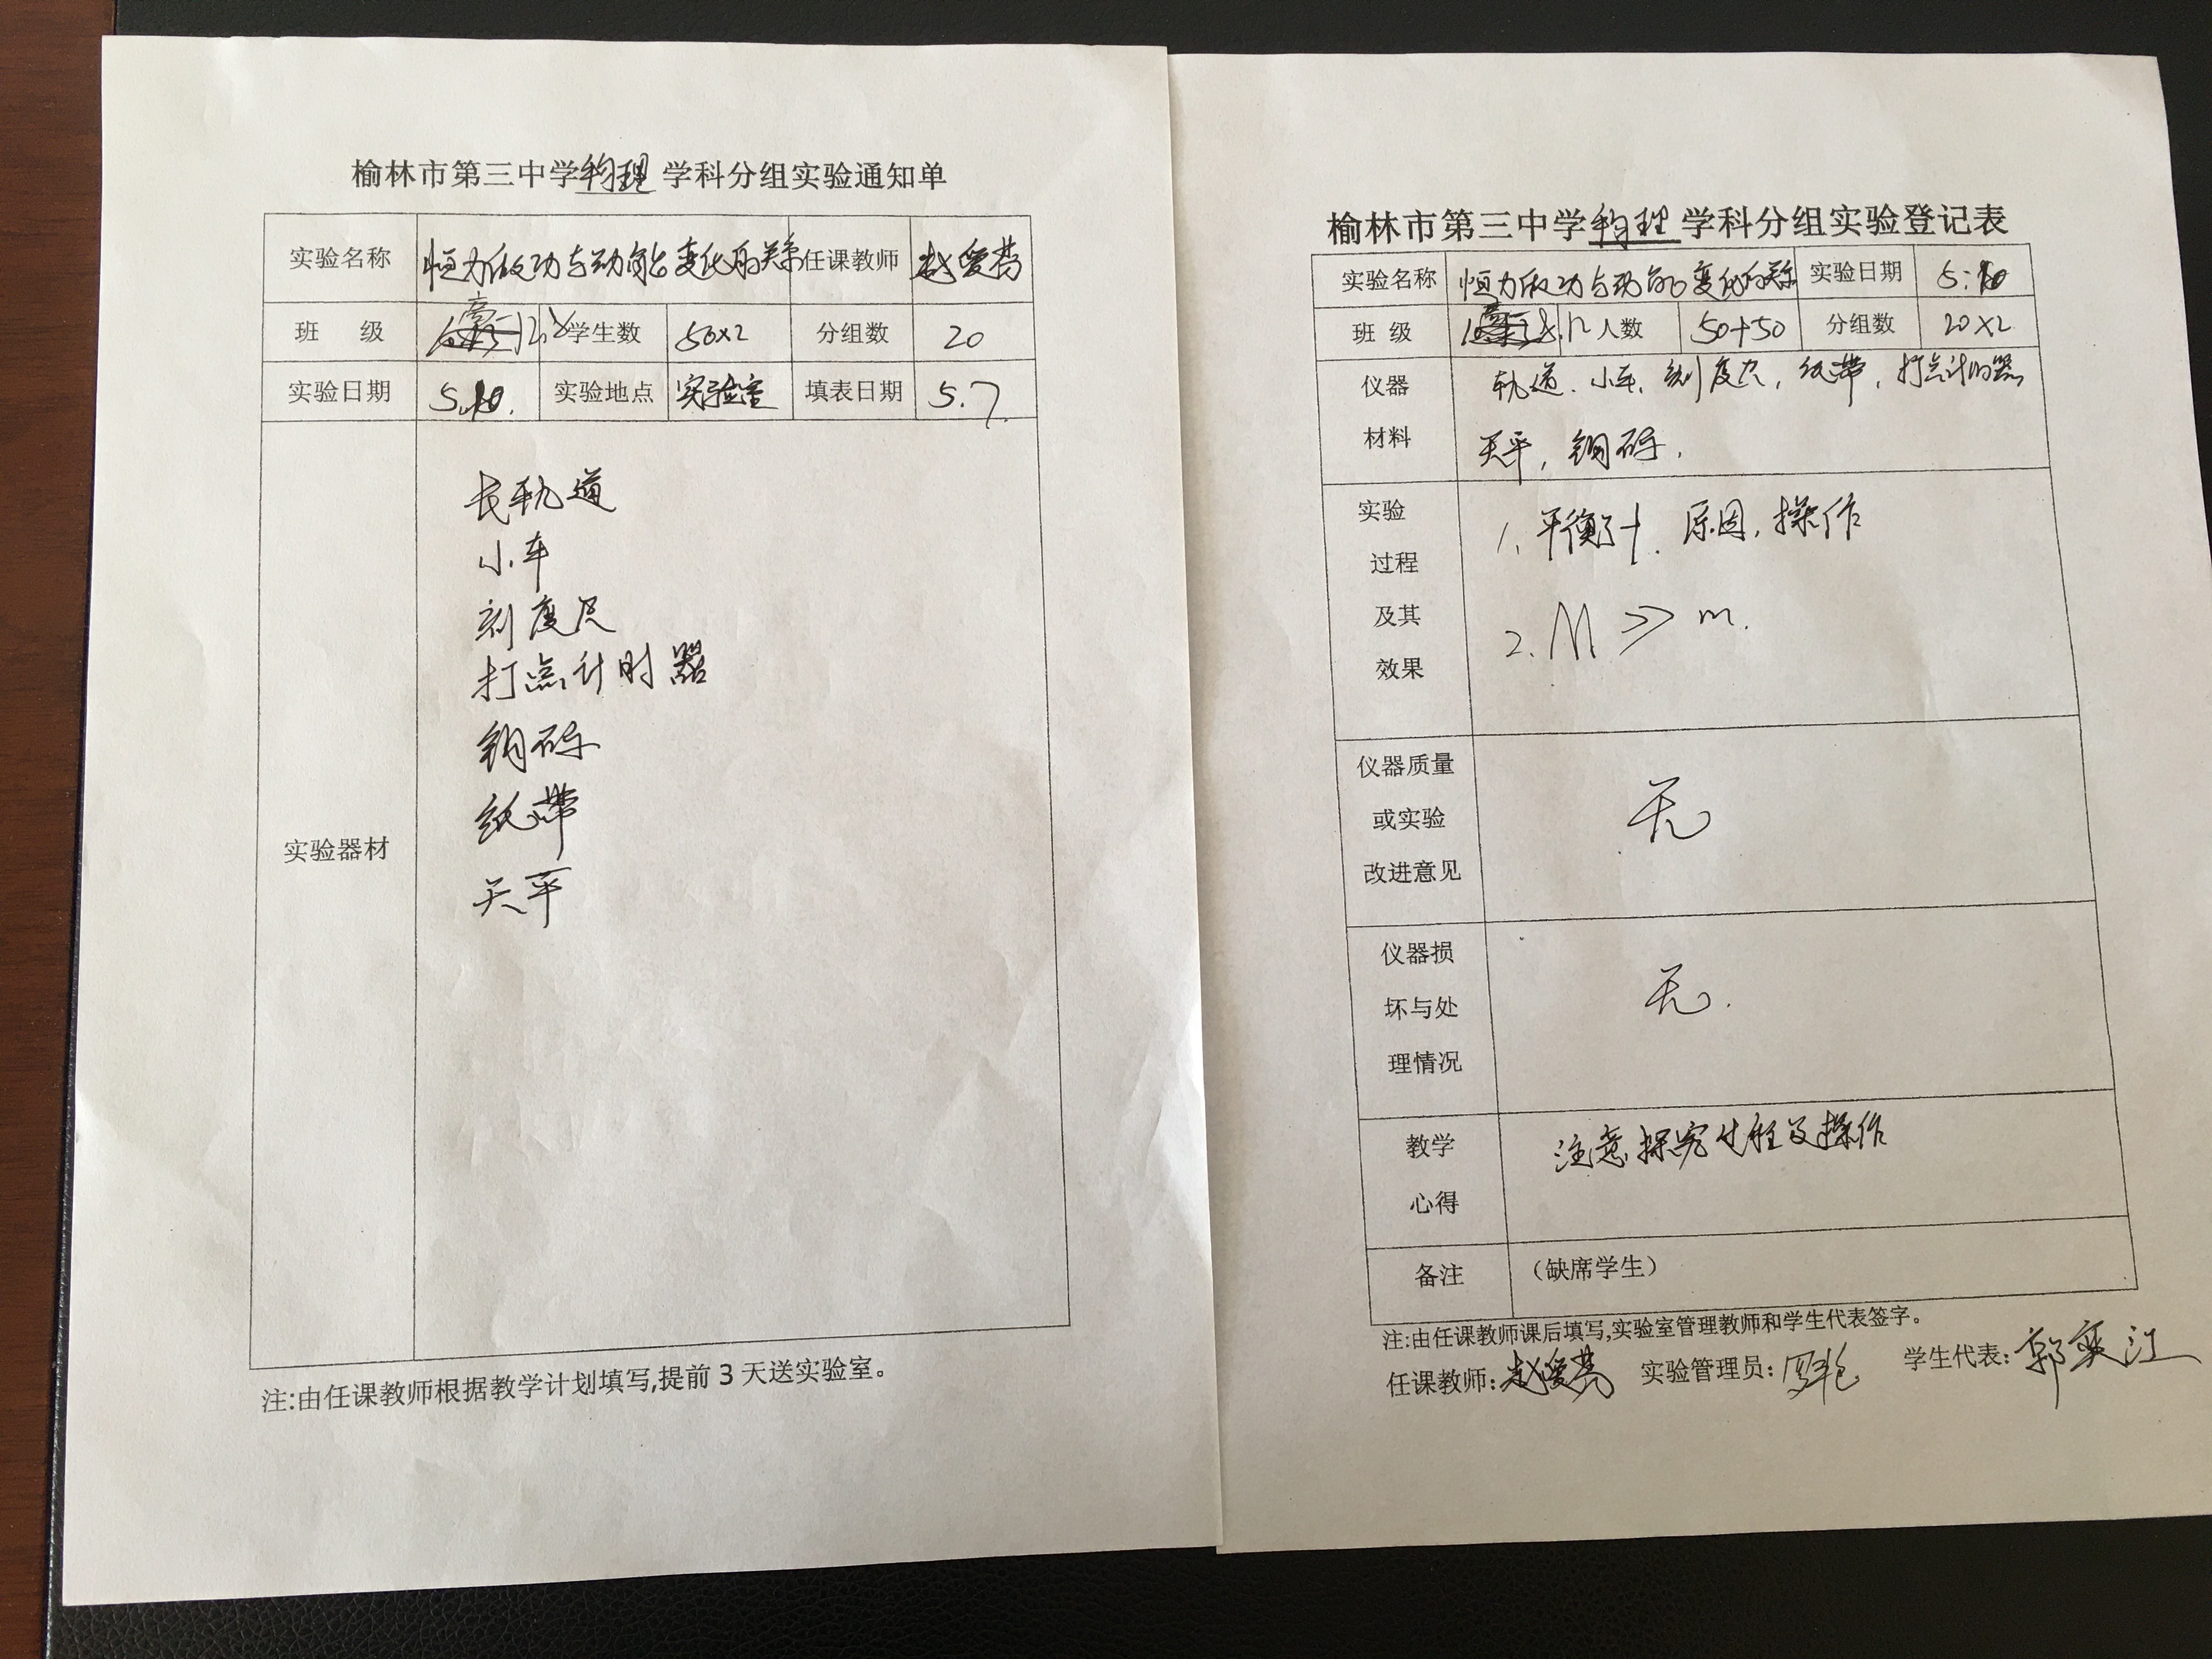 榆林市第三中学物理学科分组实验通知单
实验名称 恒力做功与动能变化的关系 任课教师 赵爱梅
班 级 12.8 学生数 50×2 分组数 20
实验日期 5.10. 实验地点 实验室 填表日期 5.7.
实验器材
长轨道
小车
刻度尺
打点计时器
钩码
纸带
天平
注:由任课教师根据教学计划填写,提前3天送实验室。
榆林市第三中学物理学科分组实验登记表
实验名称 恒力做功与动能变化的关系 实验日期 5.10
班 级 8.12 人数 50+50 分组数 20×2
仪器 轨道、小车、刻度尺,纸带,打点计时器
材料 天平,钩码.
实验
过程
及其
效果
1、平衡f、原因,操作
2. M≫m.
仪器质量
或实验
改进意见
无
仪器损
坏与处
理情况
无.
教学
心得
注意探究过程及操作
备注 (缺席学生)
注:由任课教师课后填写,实验室管理教师和学生代表签字。
任课教师: 实验管理员: 学生代表: